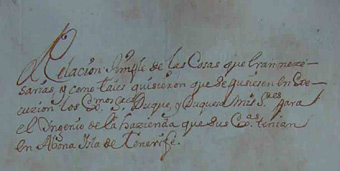 Relación simple de las Cosas que eran nece-
sarias, y como tales quisieron que se pusiesen en Exe-
cuzion los Ex.mos S. Duque, y Duquesa mis S.res para
el Ingenio de la hazienda que sus Ex.as tenian
en Abona Isla de Tenerife.